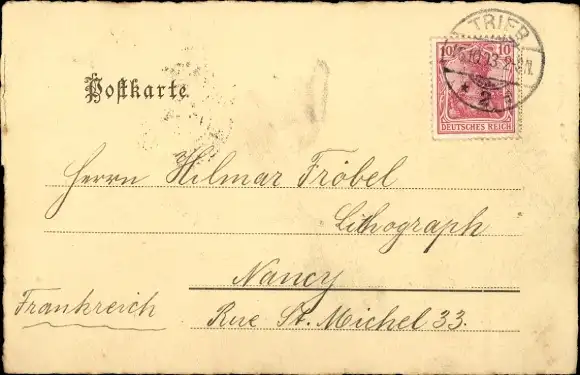 TRIER
10 10
DEUTSCHES REICH
Postkarte
Herrn Hilmar Fröbel
Lithograph
Nancy
Frankreich
Rue St. Michel 33.